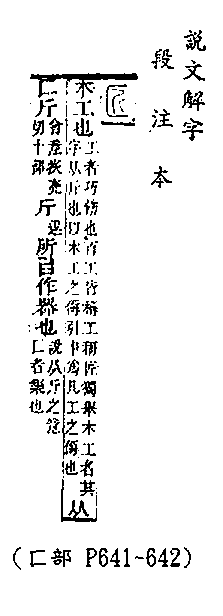 說文解字
段注本
匠
木工也工者巧飭也百工皆稱工稱匠獨舉木工者其字从斤也以木工之偁引申爲凡工之偁也从
匚斤會意疾亮切十部斤逗所㠯作器也說从斤之意匚者榘也
(匚部 P641-642)